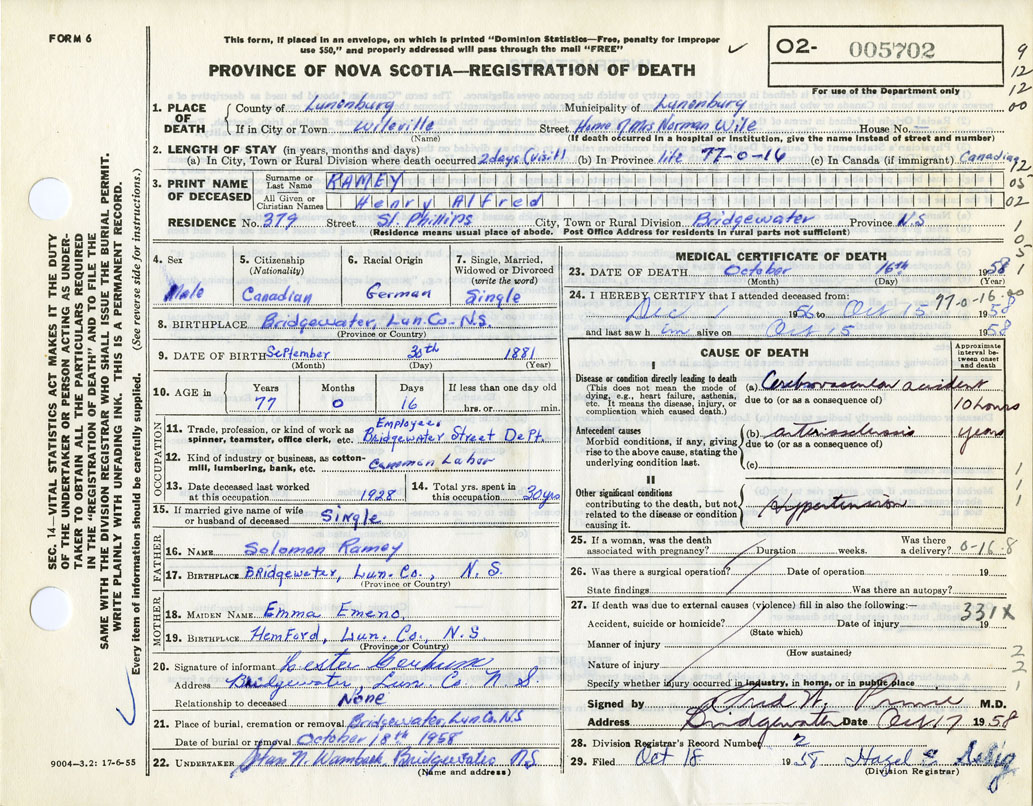 FORM 6
This form, if placed in an envelope, on which is printed “Dominion Statistics—Free, penalty for improper
use $50,” and properly addressed will pass through the mail “FREE”
PROVINCE OF NOVA SCOTIA—REGISTRATION OF DEATH
O2- 005702
For use of the Department only
1. PLACE OF DEATH
County of Lunenburg Municipality of Lunenburg
If in City or Town Wileville Street Home of Mrs Norman Wile House No.
(Name) (If death occurred in a hospital or institution, give the name instead of street and number)
2. LENGTH OF STAY (in years, months and days)
(a) In City, Town or Rural Division where death occurred 2 days (visit) (b) In Province life 77-0-16 (c) In Canada (if immigrant) Canadian
3. PRINT NAME OF DECEASED
Surname or Last Name RAMEY
All Given or Christian Names Henry Alfred
RESIDENCE No. 379 Street St. Phillips City, Town or Rural Division Bridgewater Province N.S
(Residence means usual place of abode. Post Office Address for residents in rural parts not sufficient)
4. Sex Male
5. Citizenship (Nationality) Canadian
6. Racial Origin German
7. Single, Married, Widowed or Divorced (write the word) Single
8. BIRTHPLACE Bridgewater, Lun. Co. N.S.
(Province or Country)
9. DATE OF BIRTH September 30th 1881
(Month) (Day) (Year)
10. AGE in Years 77 Months 0 Days 16 If less than one day old hrs. or min.
OCCUPATION
11. Trade, profession, or kind of work as spinner, teamster, office clerk, etc. Employee Bridgewater Street Dept.
12. Kind of industry or business, as cotton-mill, lumbering, bank, etc. Common Labor
13. Date deceased last worked at this occupation 1928
14. Total yrs. spent in this occupation 30 yrs
15. If married give name of wife or husband of deceased Single
FATHER
16. NAME Solomon Ramey
17. BIRTHPLACE Bridgewater, Lun. Co., N.S.
(Province or Country)
MOTHER
18. MAIDEN NAME Emma Emeno,
19. BIRTHPLACE Hemford, Lun. Co., N.S
(Province or Country)
20. Signature of informant Lester
Address Bridgewater, Lun. Co N S.
Relationship to deceased None
21. Place of burial, cremation or removal Bridgewater, Lun. Co. N.S
Date of burial or removal October 18th 1958
22. UNDERTAKER Bridgewater N.S
(Name and address)
MEDICAL CERTIFICATE OF DEATH
23. DATE OF DEATH October 16th 1958
(Month) (Day) (Year)
24. I HEREBY CERTIFY that I attended deceased from: 77-0-16
Dec 1 1956 to Oct 15 1958
and last saw him alive on Oct 15 1958
CAUSE OF DEATH
Approximate interval between onset and death
I
Disease or condition directly leading to death
(This does not mean the mode of dying, e.g., heart failure, asthenia, etc. It means the disease, injury, or complication which caused death.)
(a) Cerebrovascular accident
due to (or as a consequence of) 10 hours
Antecedent causes
Morbid conditions, if any, giving rise to the above cause, stating the underlying condition last.
(b) arteriosclerosis years
due to (or as a consequence of)
(c)
II
Other significant conditions
contributing to the death, but not related to the disease or condition causing it.
Hypertension
25. If a woman, was the death associated with pregnancy? Duration weeks. Was there a delivery? 0-16-8
26. Was there a surgical operation? Date of operation 19
State findings Was there an autopsy?
27. If death was due to external causes (violence) fill in also the following:— 331X
Accident, suicide or homicide? Date of injury 19
(State which)
Manner of injury
(How sustained)
Nature of injury
Specify whether injury occurred in industry, in home, or in public place
Signed by M.D.
Address Bridgewater Date Oct 17 1958
28. Division Registrar's Record Number 2
29. Filed Oct 18 1958 Hazel E Selig
(Division Registrar)
SEC. 14—VITAL STATISTICS ACT MAKES IT THE DUTY
OF THE UNDERTAKER OR PERSON ACTING AS UNDER-
TAKER TO OBTAIN ALL THE PARTICULARS REQUIRED
IN THE “REGISTRATION OF DEATH” AND TO FILE THE
SAME WITH THE DIVISION REGISTRAR WHO SHALL ISSUE THE BURIAL PERMIT.
WRITE PLAINLY WITH UNFADING INK. THIS IS A PERMANENT RECORD.
Every item of information should be carefully supplied. (See reverse side for instructions.)
9004—3.2: 17-6-55
9
12
12
00
92
05
02
1
0
5
1
00
1
1
1
2
2
1